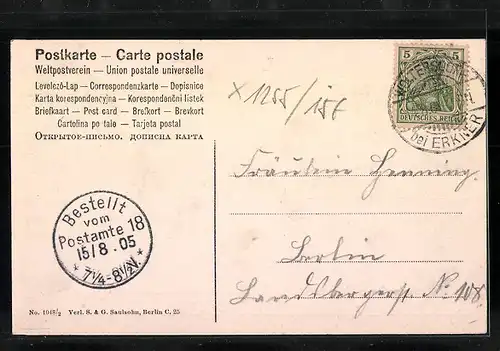 Postkarte — Carte postale
Weltpostverein — Union postale universelle
Levelező-Lap — Correspondenzkarte — Dopisnice
Karta korespondencyjna — Korespondanční listek
Briefkaart — Post card — Brefkort — Brevkort
Cartolina po tale — Tarjeta postal
Открытое-письмо. дописна карта
5 5
DEUTSCHES REICH
WOLTERSDORF
bei ERKNER
× 1255/157
Fräulein Henning
Berlin
Landsbergerst. No 108
Bestellt
vom
Postamte 18
15/8.05
* 7¼-8½V. *
No. 1048/2 Verl. S. & G. Saulsohn, Berlin C. 25